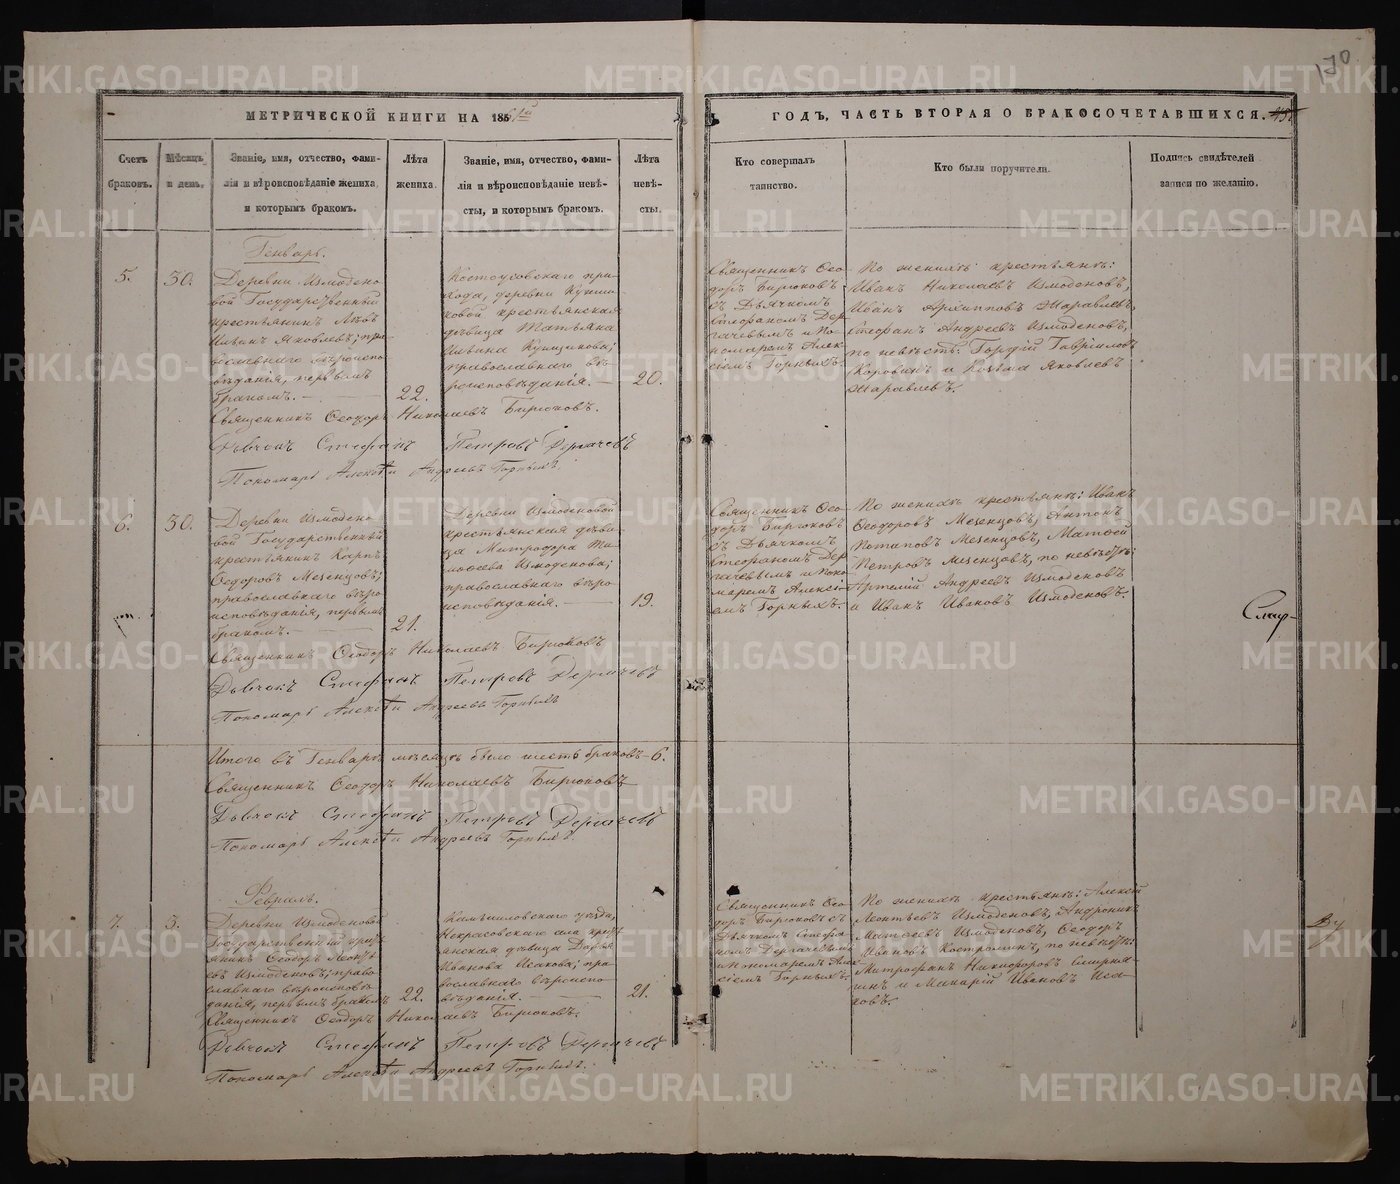 170
МЕТРИЧЕСКОЙ КНИГИ НА 1861й
ГОДЪ, ЧАСТЬ ВТОРАЯ О БРАКОСОЧЕТАВШИХСЯ.
Счетъ
браковъ.
Мѣсяцъ
и день.
Званіе, имя, отчество, фами-
лія и вѣроисповѣданіе жениха,
и которымъ бракомъ.
Лѣта
жениха.
Званіе, имя, отчество, фами-
лія и вѣроисповѣданіе невѣ-
сты, и которымъ бракомъ.
Лѣта
невѣ-
сты.
Кто совершалъ
таинство.
Кто были поручители.
Подпись свидѣтелей
записи по желанію.
Генварь.
5.
30.
Деревни Измодено-
вой Государственный
крестьянинъ
Иванъ Яковлевъ; пра-
вославнаго вѣроиспо-
вѣданія, первымъ
бракомъ.
22.
Костоусовскаго при-
хода, деревни
крестьянская
дѣвица Татьяна
православнаго вѣ-
роисповѣданія.
20.
Священникъ Ѳео-
доръ Бирюковъ
съ Дьячкомъ
Стефаномъ Дер-
гачевымъ и По-
номаремъ Алек-
сіемъ Горныхъ.
По женихѣ крестьяне:
Иванъ Николаевъ Измоденовъ,
Иванъ Архипповъ Журавлевъ,
Стефанъ Андреевъ Измоденовъ,
по невѣстѣ: Гордій Гавріиловъ
и Козьма Яковлевъ
Журавлевъ.
Священникъ Ѳеодоръ Николаевъ Бирюковъ.
Дьячокъ Стефанъ Петровъ Дергачевъ
Пономарь Алексѣй Андреевъ Горныхъ
6.
30.
Деревни Измодено-
вой Государственный
крестьянинъ Карпъ
Ѳедоровъ Мезенцовъ;
православнаго вѣро-
исповѣданія, первымъ
бракомъ.
21.
Деревни Измоденовой
крестьянская дѣви-
ца Митродора Ти-
моѳеева Измоденова;
православнаго вѣро-
исповѣданія.
19.
Священникъ Ѳео-
доръ Бирюковъ
съ Дьячкомъ
Стефаномъ Дер-
гачевымъ и Поно-
маремъ Алексі-
емъ Горныхъ.
По женихѣ крестьяне: Иванъ
Ѳеодоровъ Мезенцовъ, Антонъ
Потаповъ Мезенцовъ, Матѳей
Петровъ Мезенцовъ, по невѣстѣ:
Артемій Андреевъ Измоденовъ
и Иванъ Ивановъ Измоденовъ.
Священникъ Ѳеодоръ Николаевъ Бирюковъ
Дьячокъ Стефанъ Петровъ Дергачевъ
Пономарь Алексѣй Андреевъ Горныхъ
Итого въ Генварѣ мѣсяцѣ было шесть браковъ-6.
Священникъ Ѳеодоръ Николаевъ Бирюковъ
Дьячокъ Стефанъ Петровъ Дергачевъ
Пономарь Алексѣй Андреевъ Горныхъ
Февраль.
7.
3.
Деревни Измоденовой
Государственный крест-
янинъ Ѳеодоръ Леонть-
евъ Измоденовъ; право-
славнаго вѣроисповѣ-
данія, первымъ бракомъ
22.
Камышловскаго уѣзда,
Некрасовскаго села крест-
янская дѣвица Дарья
Иванова Исакова; пра-
вославнаго вѣроиспо-
вѣданія.
21.
Священникъ Ѳео-
доръ Бирюковъ съ
Дьячкомъ Стефа-
номъ Дергачевымъ
и Пономаремъ Алек-
сіемъ Горныхъ.
По женихѣ крестьяне: Алексѣй
Леонтьевъ Измоденовъ, Андроникъ
Матѳеевъ Измоденовъ, Ѳеодоръ
Ивановъ Костроминъ, по невѣстѣ:
Митрофанъ Никифоровъ Смирня-
гинъ и Макарій Ивановъ Иса-
ковъ.
Священникъ Ѳеодоръ Николаевъ Бирюковъ.
Дьячокъ Стефанъ Петровъ Дергачевъ
Пономарь Алексѣй Андреевъ Горныхъ.
METRIKI.GASO-URAL.RU